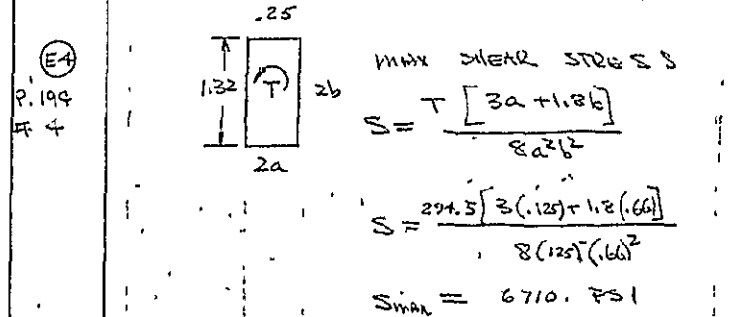 .25
E4
P. 194
# 4
1.32
T
2b
2a
MAX SHEAR STRESS
S = T [3a + 1.8b] / 8a²b²
S = 234.5 [3(.125) + 1.8(.66)] / 8(.125)²(.66)²
Smax = 6710. PSI